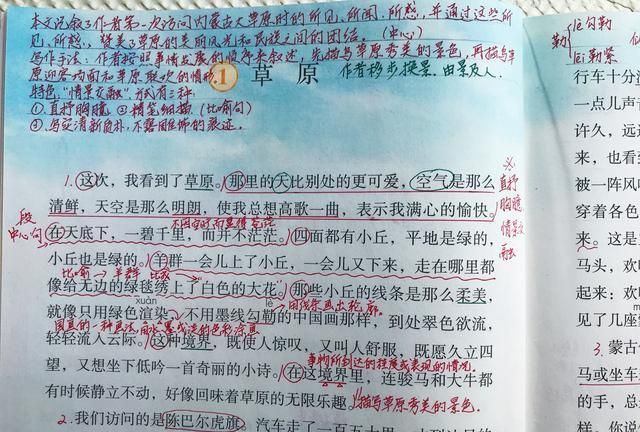 本文记叙了作者第一次访问内蒙古大草原时的所见、所闻、所感，并通过这些所
见、所感，赞美了草原的美丽风光和民族之间的团结。（中心）
写作手法：作者按照事情发展的顺序来叙述，先描写草原秀美的景色，再描写草
原迎客场面和草原联欢的情形。 作者移步换景。由景及人。
特色："情景交融"。方式有三种。
①直抒胸臆 ②精笔细描（比喻句）
③写实清新自朴，不露雕饰的痕迹。
1 草原
1.这次，我看到了草原。那里的天比别处的更可爱，空气是那么
清鲜，天空是那么明朗，使我总想高歌一曲，表示我满心的愉快。
直抒胸臆 情景交融
段中心句
在天底下，一碧千里，而并不茫茫。四面都有小丘，平地是绿的，
小丘也是绿的。羊群一会儿上了小丘，一会儿又下来，走在哪里都
比喻 羊群
像给无边的绿毯绣上了白色的大花。那些小丘的线条是那么柔美，
xuàn lè 用线条画出轮廓。
就像只用绿色渲染，不用墨线勾勒的中国画那样，到处翠色欲流，
国画的一种画法，用水墨或淡的色彩涂画
轻轻流入云际。这种境界，既使人惊叹，又叫人舒服，既愿久立四
事物所到达的程度或表现的情况。
望，又想坐下低吟一首奇丽的小诗。在这境界里，连骏马和大牛都
有时候静立不动，好像回味着草原的无限乐趣。描写草原秀美的景色。
2.我们访问的是陈巴尔虎旗。汽车走了一百五十里，才到达目的
勒 lè勾勒
lēi勒紧
行车十分
一点儿声
许久，远
来，也看到
被一阵风吹
穿着各色
来。这是
马头，欢
起来：欢
见了几座
3.蒙古
马或坐车
的手，总